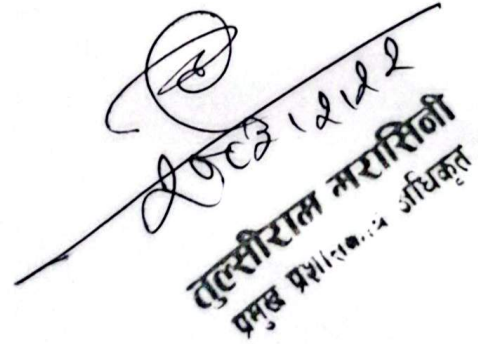 २०८३।२।२२
तुल्सीराम मरासिनी
प्रमुख प्रशासकीय अधिकृत